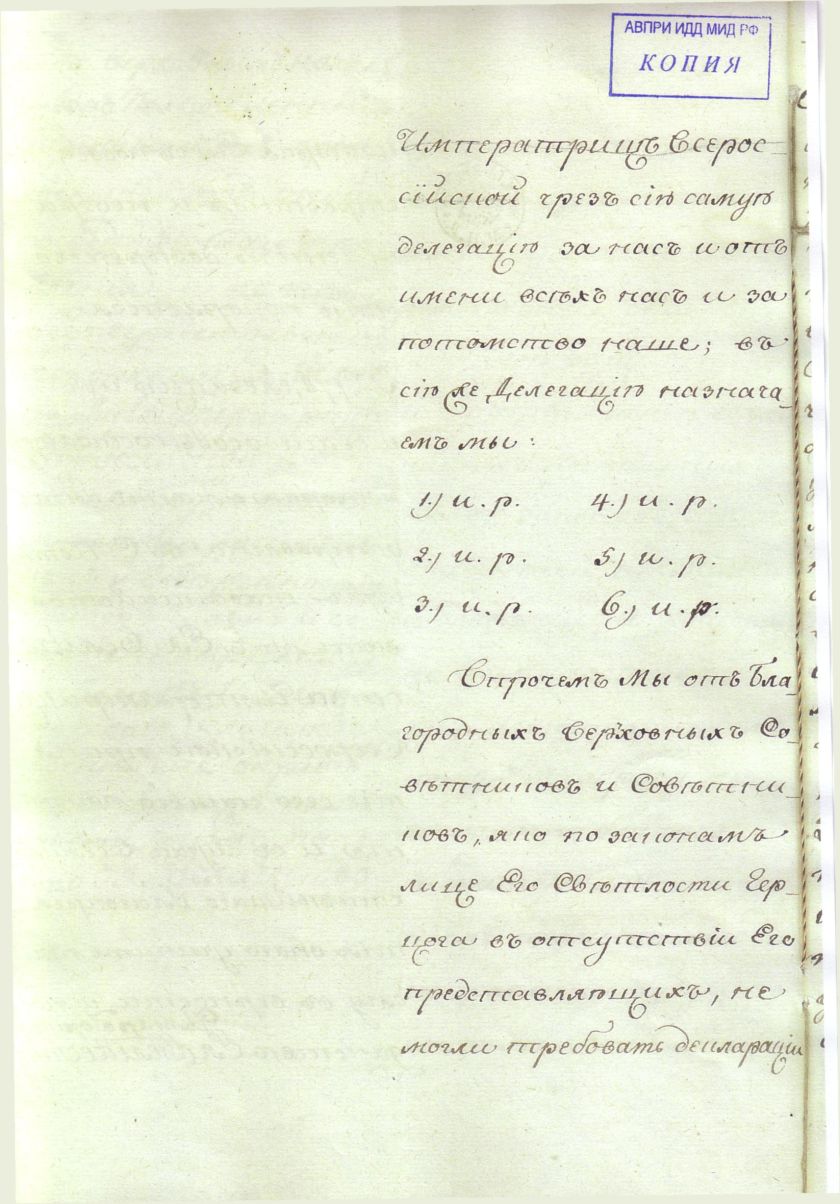 АВПРИ ИДД МИД РФ
КОПИЯ
Императрицѣ Всерос-
сійской чрезъ сію самую
делегацію за насъ и отъ
имени всѣхъ насъ и за
потомство наше; въ
сію же Делегацію назнача-
емъ мы:
1.) и. р. 4.) и. р.
2.) и. р. 5.) и. р.
3.) и. р. 6.) и. р.
Впрочемъ Мы отъ Бла-
городныхъ Верховныхъ Со-
вѣтниковъ и Совѣтни-
ковъ, яко по законамъ
лице Его Свѣтлости Гер-
цога въ отсутствіи Его
представляющихъ, не
могли требовать декларации